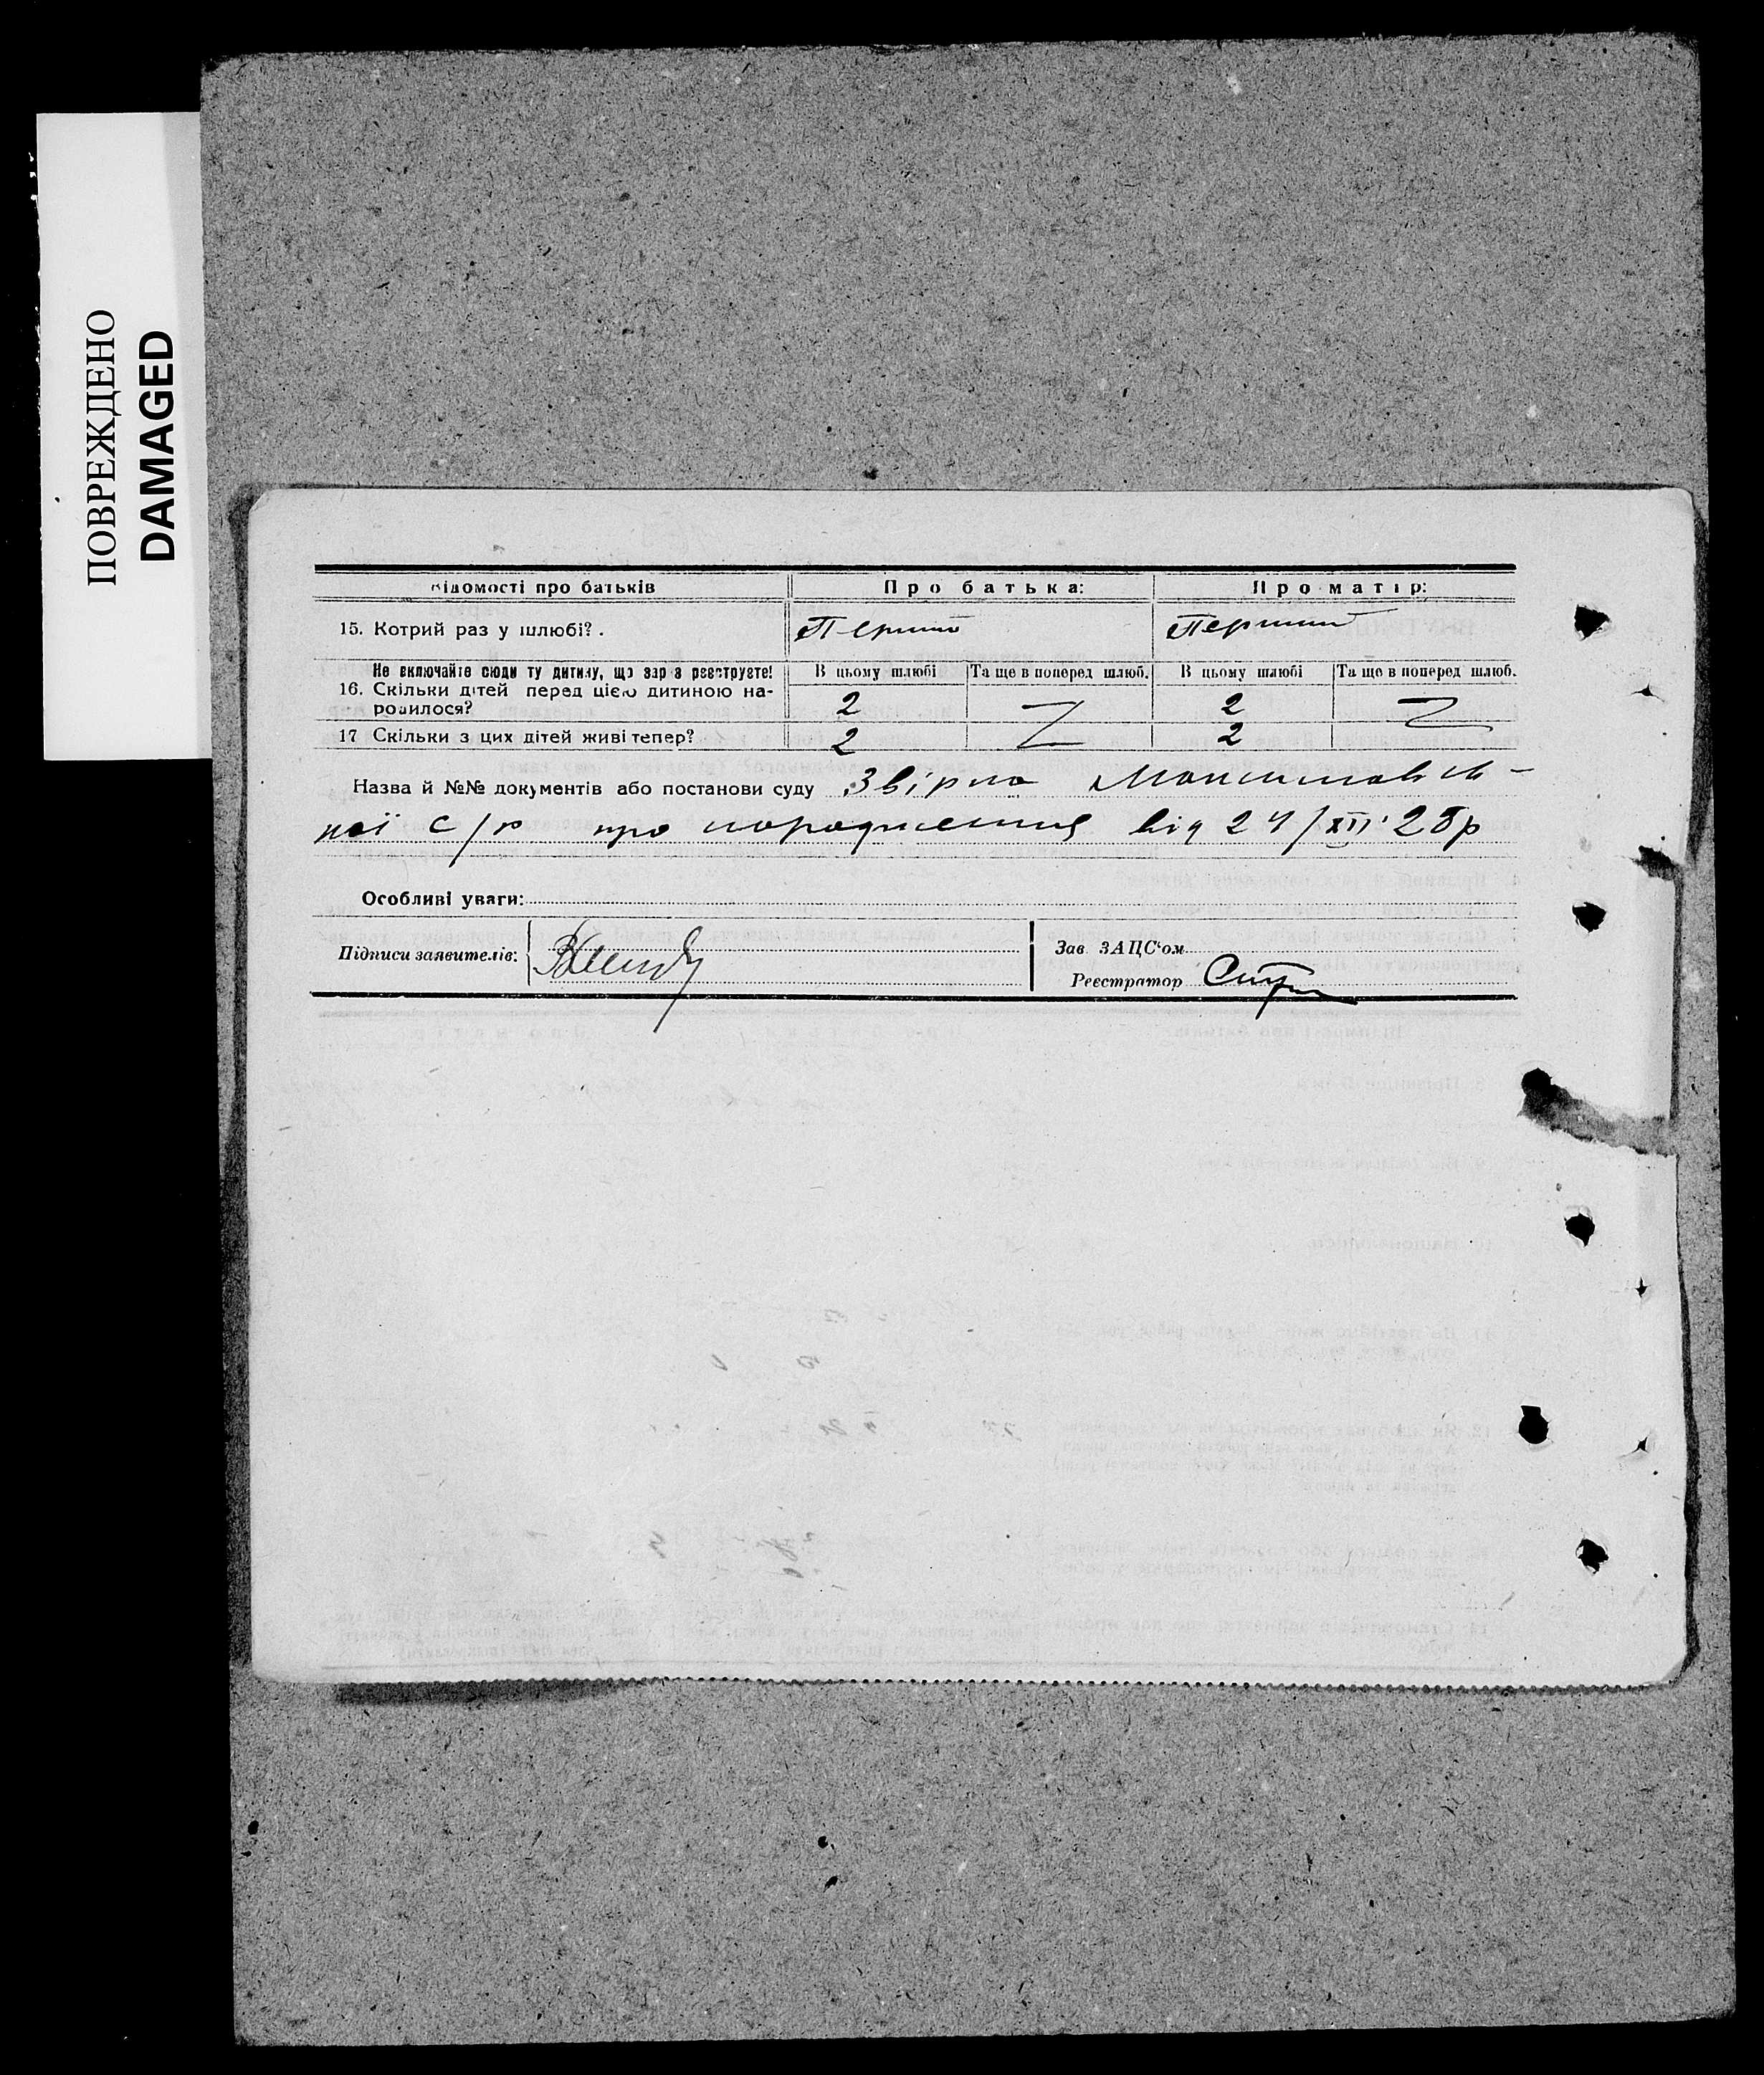 ПОВРЕЖДЕНО
DAMAGED
Відомості про батьків Про батька: Про матір:
15. Котрий раз у шлюбі? . Перший Перший
Не включайте сюди ту дитину, що зараз реєструєте! В цьому шлюбі Та ще в поперед шлюб. В цьому шлюбі Та ще в поперед шлюб.
16. Скільки дітей перед цією дитиною на- 2 2
родилося?
17 Скільки з цих дітей живі тепер? 2 2
Назва й №№ документів або постанови суду
ної с/р про народження від 24/XII 28р
Особливі уваги:
Підписи заявителів: Зав ЗАЦС'ом
Реєстратор